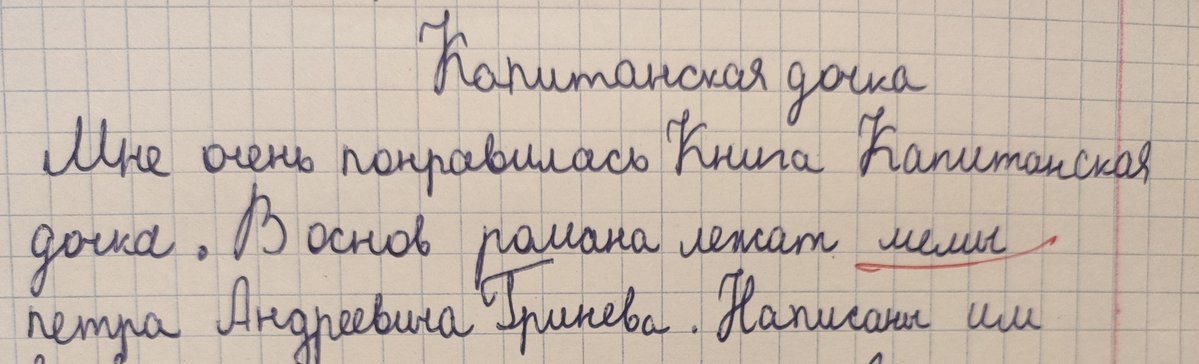 Капитанская дочка
Мне очень понравилась Книга Капитанская
дочка. В основ романа лежат мемы
петра Андреевича Гринева. Написаны им